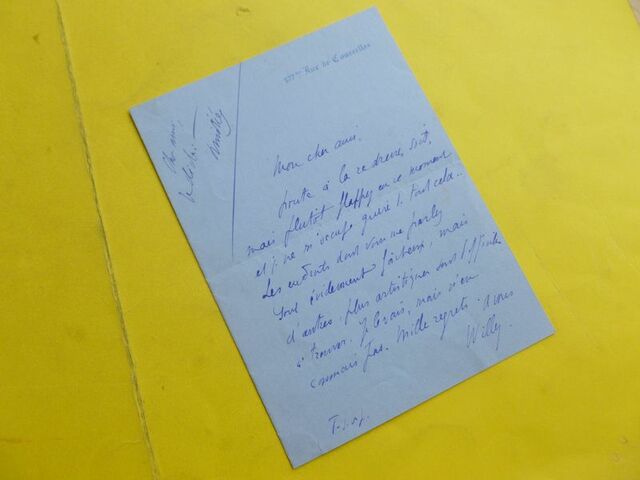 177 bis Rue de Courcelles
Mon cher ami,
à la redresse, soit,
mais plutôt flappy en ce moment
et je ne m'occupe guère de tout cela.
Les endroits dont vous me parlez
sont évidemment fâcheux, mais
d'autres plus artistiques sont difficiles
à trouver. Je le sais, mais n'en
connais pas. Mille regrets. A vous
Willy
amitié